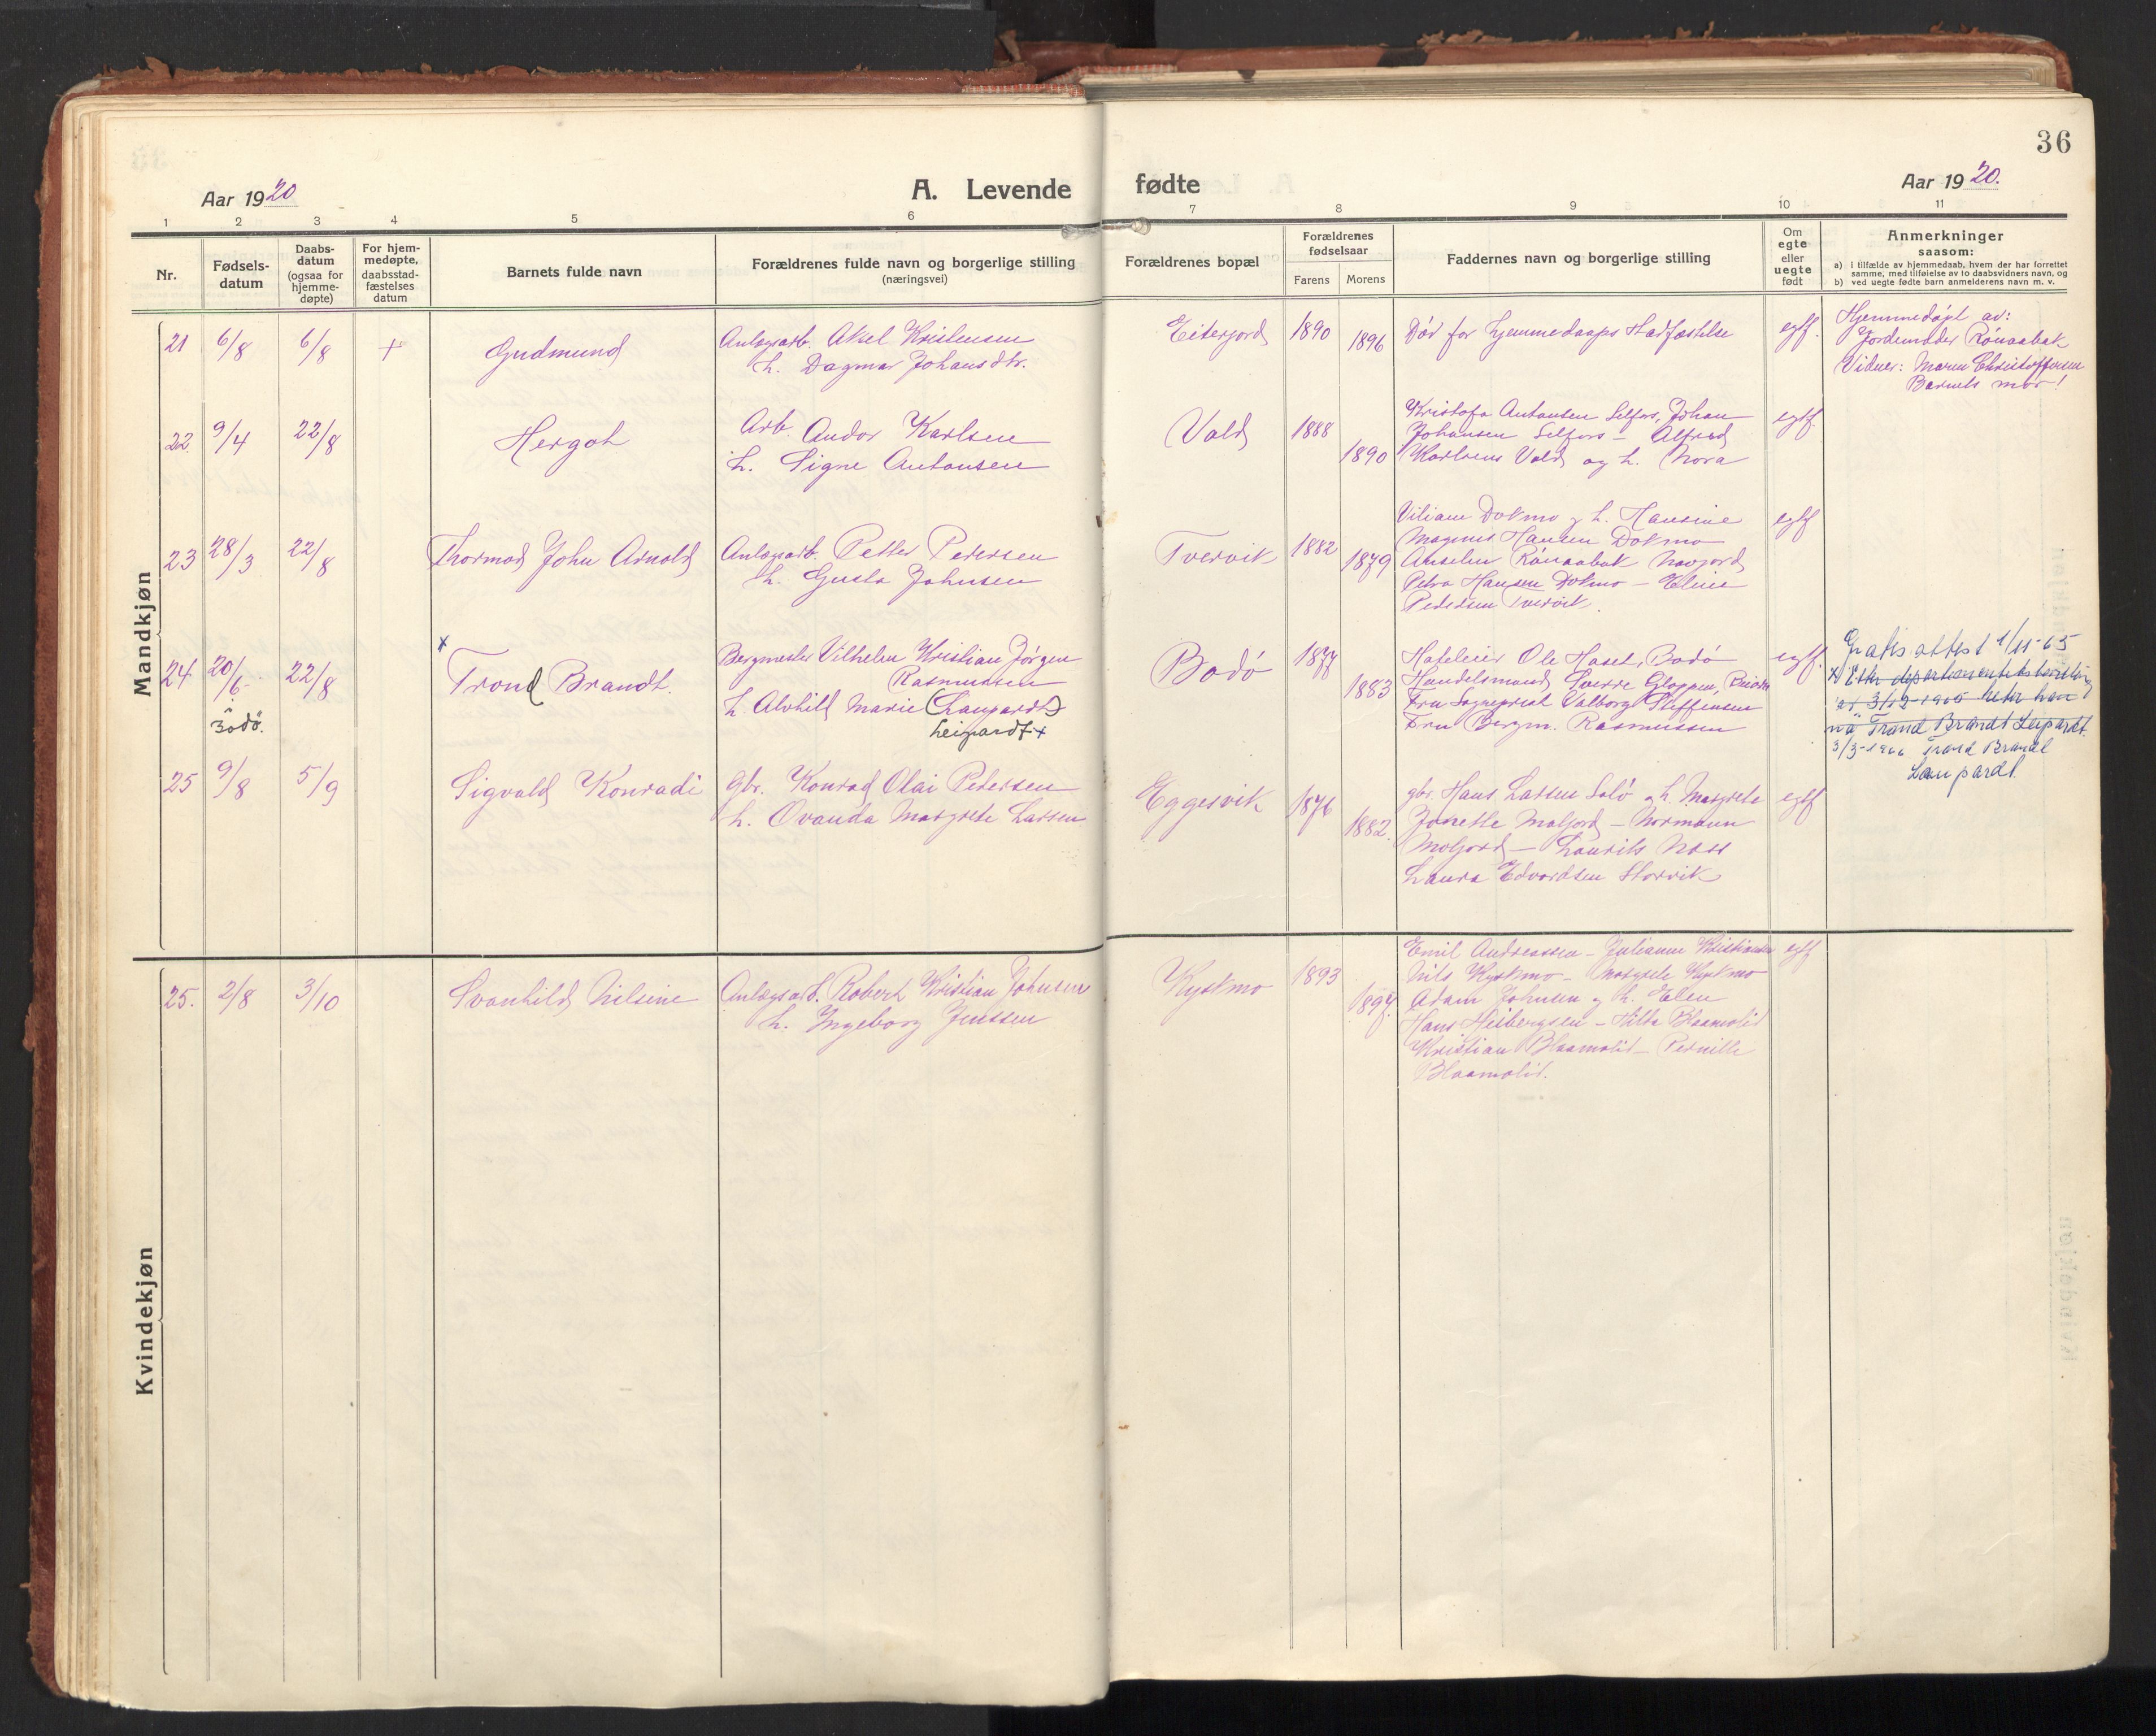 36
Aar 1920
A. Levende fødte
Aar 1920.
1 2 3 4 5 6 7 8 9 10 11
Nr.
Fødsels-
datum
Daabs-
datum
(ogsaa for
hjemme-
døpte)
For hjem-
medøpte,
daabsstad-
fæstelses
datum
Barnets fulde navn
Forældrenes fulde navn og borgerlige stilling
(næringsvei)
Forældrenes bopæl
Forældrenes
fødselsaar
Farens Morens
Faddernes navn og borgerlige stilling
Om
egte
eller
uegte
født
Anmerkninger
saasom:
a) i tilfælde av hjemmedaab, hvem der har forrettet
samme, med tilføielse av to daabsvidners navn, og
b) ved uegte fødte barn anmelderens navn m. v.
Mandkjøn
21 6/8 6/8 + Gudmund
Anlægsarb. Aksel Kristensen
h. Dagmar Johansdtr.
Eiterjord 1890 1896
Død før hjemmedaaps stadfæstelse
egtf.
Hjemmedøpt av:
Jordemoder Rönaabak
Vidner: Maren Christoffersen
Barnets mor!
22. 9/4 22/8 Hergot
Arb. Andor Karlsen
h. Signe Antonsen
Vald 1888 1890
Kristofa Antonsen Selfors, Johan
Johansen Selfors - Alfred
Karlsens Vald og h. Nora
egtf.
23 28/3 22/8 Thormod John Arnold
Anlægsarb. Petter Petersen
h. Gusta Johnsen
Tvervik 1882 1879
Viliam Dokmo og h. Hansine
Magnus Hansen Dokmo
Anselm Rönaabak Navjord
Petra Hansen Dokmo - Eline
Pedersen Tvervik.
egtf
24 20/6 22/8 x Trond Brandt.
Bodö.
Bergmester Vilhelm Kristian Jörgen
Rasmussen
h. Alvhild Marie (Laupardt)
Leipardt x
Bodö 1877 1883
Hoteleier Ole Hasel, Bodö
Handelsmand Sverre Gloppen,
Fru Sogneprest Valborg Steffensen
Fru Bergm. Rasmussen
egtf.
Gratis attest 1/11-65
x Etter departementets bevilling
av 3/12-1965 heter han
nå Trond Brandt Leipardt.
3/3-1966 Trond Brandt
Laupardt.
25 9/8 5/9 Sigvald Konradi
gbr. Konrad Olai Petersen
h. Ovanda Margrete Larsen
Eggesvik 1876 1882.
gbr. Hans Larsen Solö og h. Margrete
Jonette Moljord - Normann
Moljord - Laurits Næss
Laura Edvardsen Storvik
egtf
Kvindekjøn
25. 2/8 3/10 Svanhild Nilsine
Anlægsarb. Robert Kristian Johnsen
h. Ingeborg Jenssen
Kyskmo 1893 1897.
Emil Andreassen - Julianne Kristiansen
Nils Kyskmo - Margrete Kyskmo
Adam Johnsen og h. Elen
Hans Heibergsen - Hilda Blaamoli
Kristian Blaamoli - Pernille
Blaamoli.
egtf